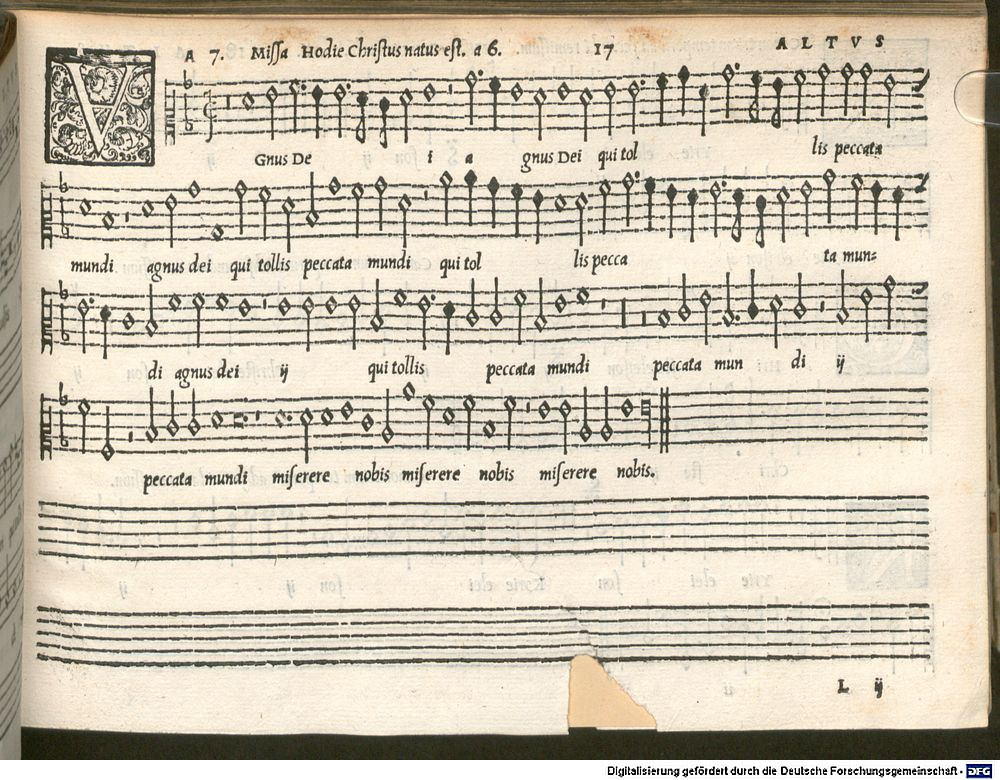 A 7. Missa Hodie Christus natus est. a 6. 17 ALTVS
GNUS DE i a gnus Dei qui tol lis peccata
mundi agnus dei qui tollis peccata mundi qui tol lis pecca ta mun=
di agnus dei ij qui tollis peccata mundi peccata mun di ij
peccata mundi miserere nobis miserere nobis miserere nobis.
L ij
Digitalisierung gefördert durch die Deutsche Forschungsgemeinschaft - DFG